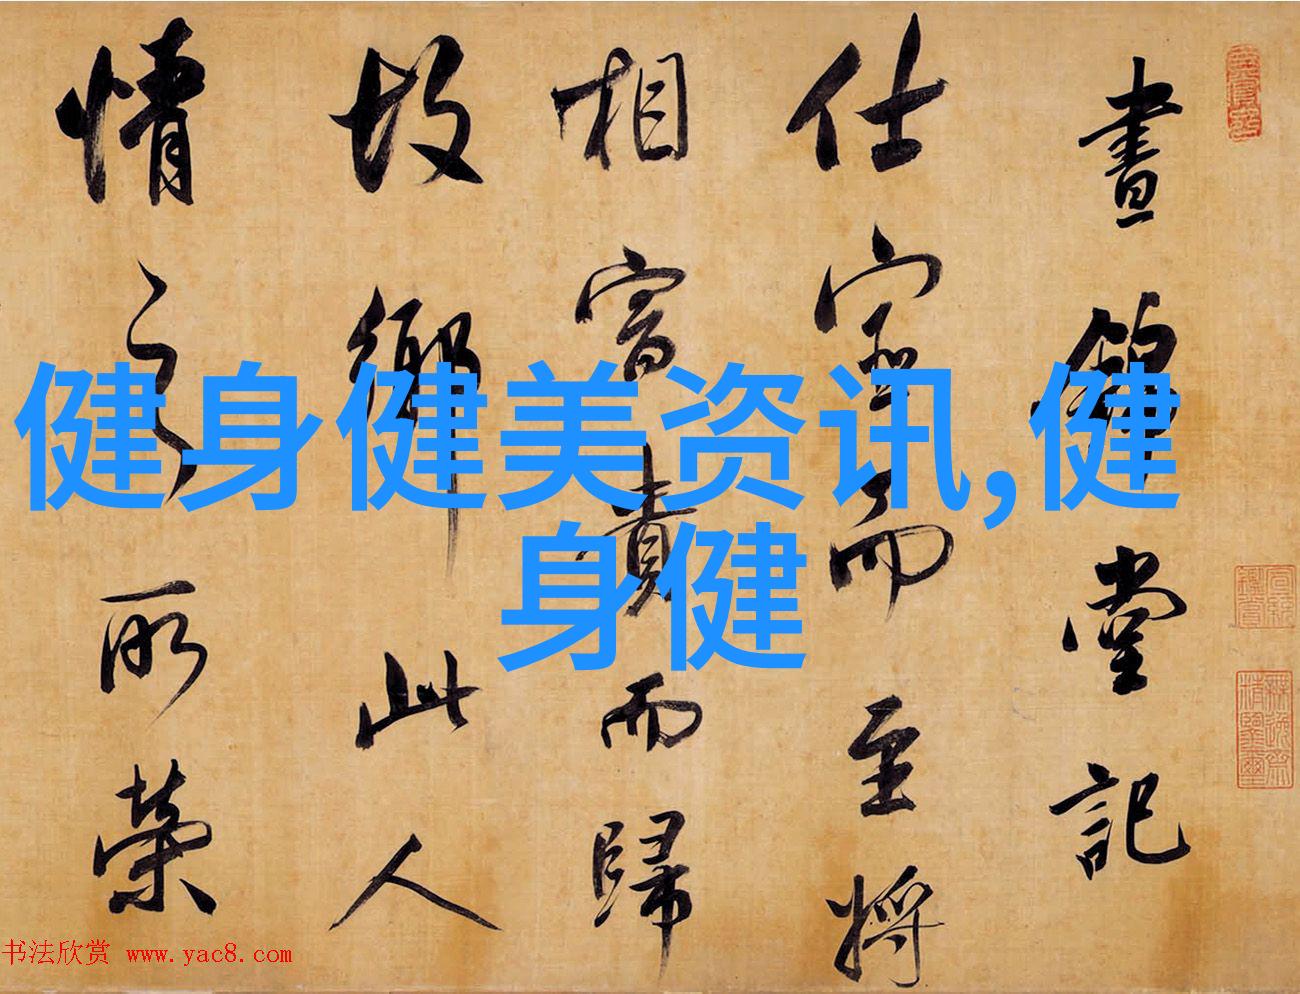 晝錦堂記
仕宦而至將
相富貴而歸
故鄉此人
情之所榮
健身健美资讯,健
身健
书法欣赏 www.yac8.com